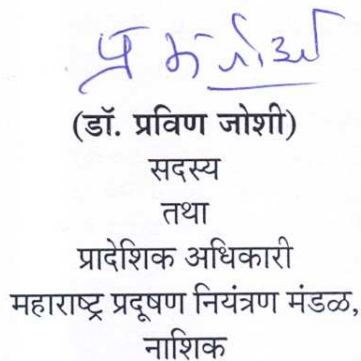 (डॉ. प्रविण जोशी)
सदस्य
तथा
प्रादेशिक अधिकारी
महाराष्ट्र प्रदूषण नियंत्रण मंडळ,
नाशिक